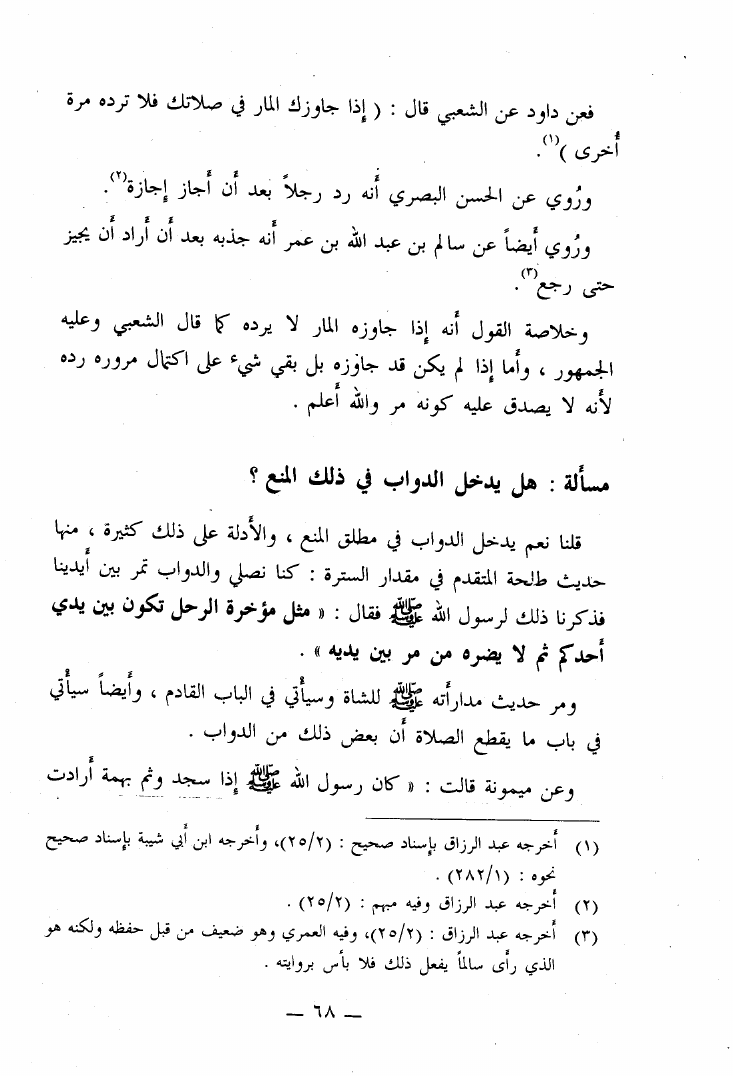 فعن داود عن الشعبي قال : ( إذا جاوزك المار في صلاتك فلا ترده مرة
أُخرى )(١).
ورُوي عن الحسن البصري أنه رد رجلاً بعد أن أجاز إجازة(٢).
ورُوي أيضاً عن سالم بن عبد الله بن عمر أنه جذبه بعد أن أراد أن يجيز
حتى رجع(٣).
وخلاصة القول أنه إذا جاوزه المار لا يرده كما قال الشعبي وعليه
الجمهور ، وأما إذا لم يكن قد جاوزه بل بقي شيء على اكتمال مروره رده
لأنه لا يصدق عليه كونه مر والله أعلم .
مسألة : هل يدخل الدواب في ذلك المنع ؟
قلنا نعم يدخل الدواب في مطلق المنع ، والأدلة على ذلك كثيرة ، منها
حديث طلحة المتقدم في مقدار السترة : كنا نصلي والدواب تمر بين أيدينا
فذكرنا ذلك لرسول الله ﷺ فقال : « مثل مؤخرة الرحل تكون بين يدي
أحدكم ثم لا يضره من مر بين يديه » .
ومر حديث مدارأته ﷺ للشاة وسيأتي في الباب القادم ، وأيضاً سيأتي
في باب ما يقطع الصلاة أن بعض ذلك من الدواب .
وعن ميمونة قالت : « كان رسول الله ﷺ إذا سجد وثم بهمة أرادت
(١) أخرجه عبد الرزاق بإسناد صحيح : (٢٥/٢)، وأخرجه ابن أبي شيبة بإسناد صحيح
نحوه : (٢٨٢/١) .
(٢) أخرجه عبد الرزاق وفيه مبهم : (٢٥/٢) .
(٣) أخرجه عبد الرزاق : (٢٥/٢)، وفيه العمري وهو ضعيف من قبل حفظه ولكنه هو
الذي رأى سالماً يفعل ذلك فلا بأس بروايته .
— ٦٨ —